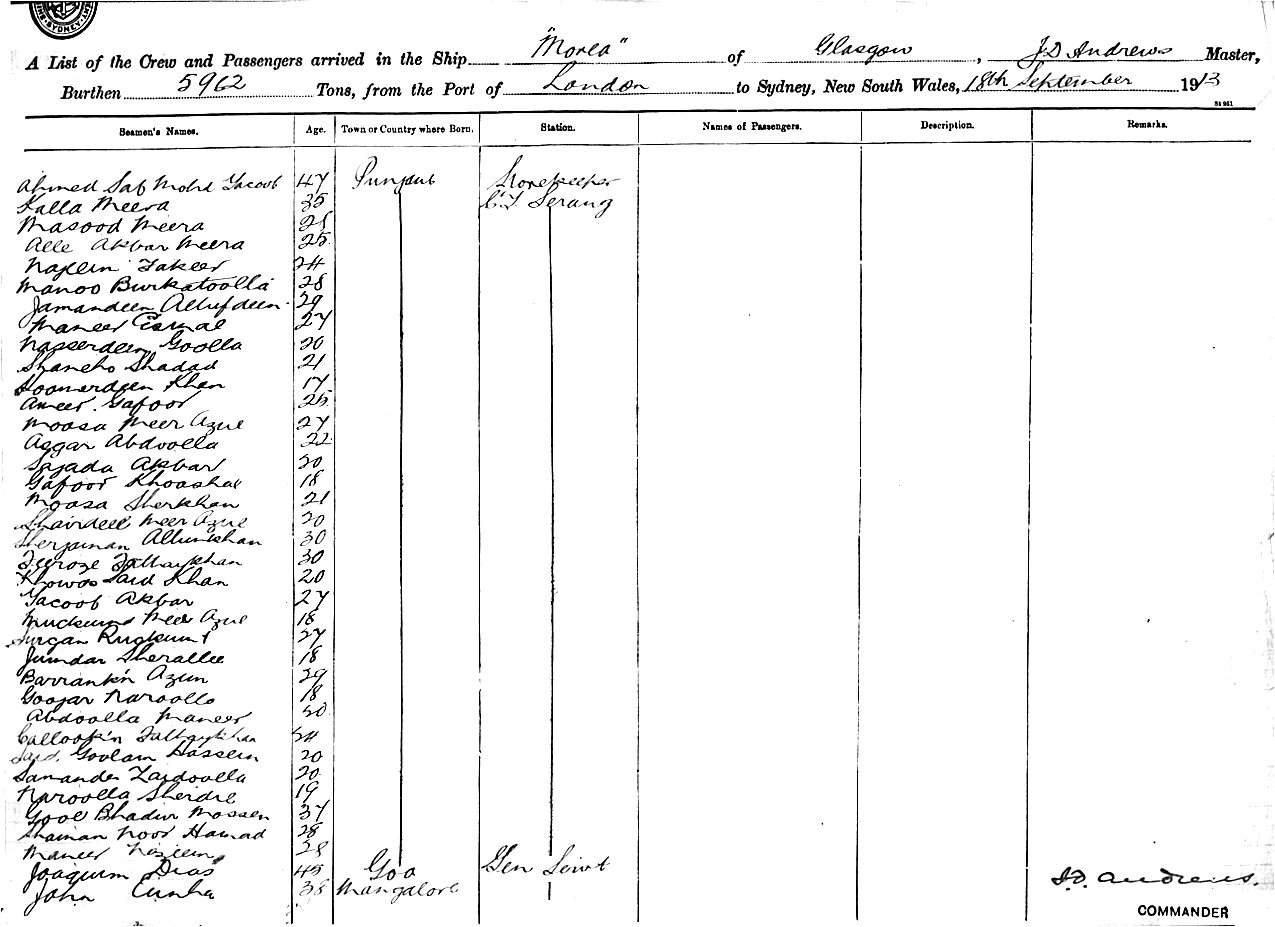 SYDNEY
A List of the Crew and Passengers arrived in the Ship "Morea" of Glasgow, J.D Andrews Master,
Burthen 5962 Tons, from the Port of London to Sydney, New South Wales, 18th September 1913
Seamen's Names. Age. Town or Country where Born. Station. Names of Passengers. Description. Remarks.
Ahmed Saf Mohd Yacoob 47 Punjaub Storekeeper
Kalla Meera 35 Serang
Masood Meera
Alle Akbar Meera 25
Nazeem Fakeer 24
Manoo Burkatoolla 28
Jamandeen Allufdeen 29
Maneer Esmal 27
Nasserdeen Goolla 20
Shaneho Shadad 21
Hoomerdeen Khan 17
Ameer Gafoor 25
Moosa Meer Azue 27
Asgar Abdoolla 22
Sajada Akbar 20
Gafoor Khoashal 18
Moosa Sherkhan 21
Shairdell Meer Azue 20
Sherjaman Allumkhan 30
Feeroze Fathaykhan 30
Khowas Said Khan 20
Yacoob Akbar 27
Meer Azue 18
27
Jumdar Sherallee 18
Barrank'n Azum 29
Googar Naroollo 18
Abdoolla Maneer
Callook'n Fathaykhan 24
Said Goolam Hassein 20
Samander Zardoolla 20
Naroolla Sherdil 19
Gool Bhadur Mossen 37
Shaman Noor Hamad 28
Maneer Nazeem 28
Joaquim Dias 45 Goa Gen Servt
John Cunha 38 Mangalore
J.D. Andrews.
COMMANDER